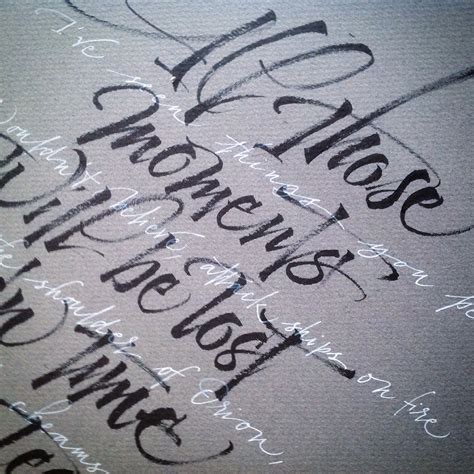 All those
moments
will be lost
n Time
I've seen things you pe
wouldn't believe, attack ships on fire
shoulder of Orion,
beams